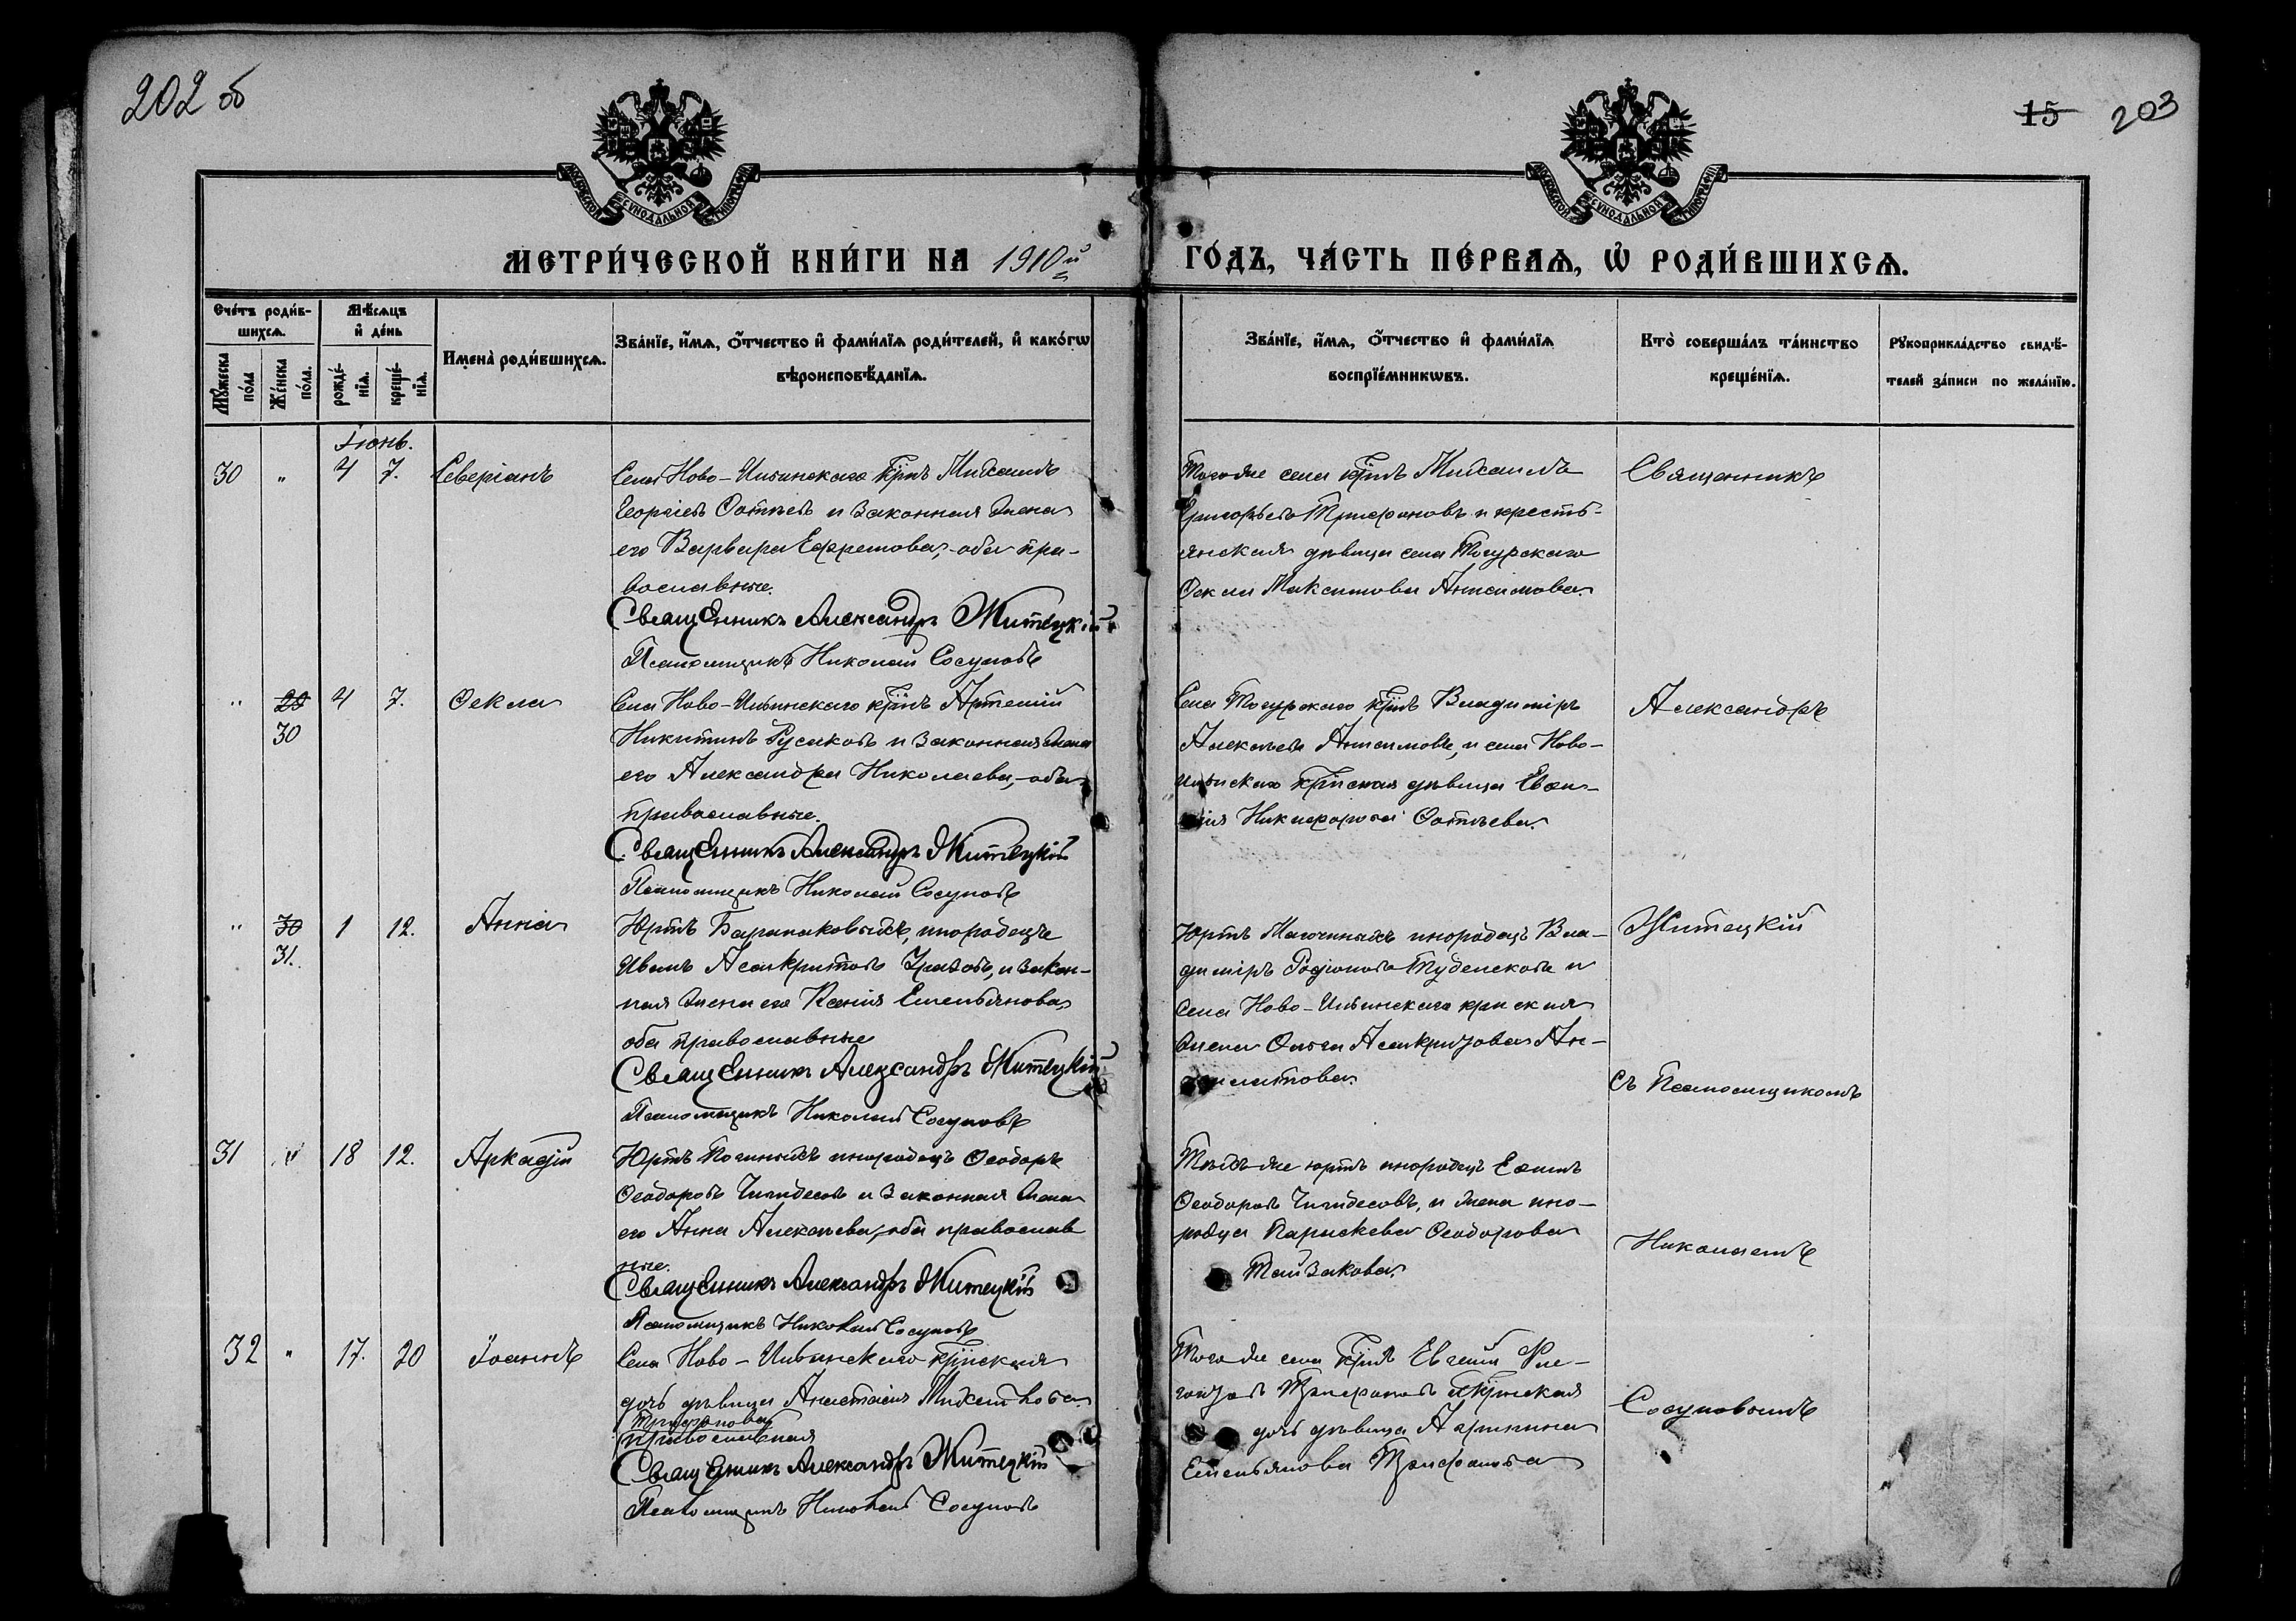 202 об
15 203
МОСКОВСКОЙ СУНОДАЛЬНОЙ ТИПОГРАФІИ
МОСКОВСКОЙ СУНОДАЛЬНОЙ ТИПОГРАФІИ
МЕТРИ́ЧЕСКОЙ КНИ́ГИ НА 1910й
ГО́ДЪ, ЧА́СТЬ ПЕ́РВАѦ, Ѡ РОДИ́ВШИХСѦ.
Сче́тъ роди́в-
шихсѧ.
Мꙋ́жеска по́ла
Же́нска по́ла.
Мѣ́сѧцъ
и҆ де́нь
рожде́-
нїѧ.
креще́-
нїѧ.
И҆мена̀ роди́вшихсѧ.
Зва́нїе, и҆́мѧ, о҆́тчество и҆ фами́лїѧ роди́телей, и҆ како́гѡ
вѣроисповѣ́данїѧ.
Зва́нїе, и҆́мѧ, о҆́тчество и҆ фами́лїѧ
воспрїе́мникѡвъ.
Кто̀ соверша́лъ та́инство
креще́нїѧ.
Рꙋкоприкла́дство свидѣ́-
телей за́писи по жела́нїю.
Іюнь.
30 " 4 7. Северіанъ
Села Ново-Ильинскаго кр̃нъ Михаилъ
Георгіевъ Фотѣевъ и законная жена
его Варвара Ефремова, - оба пра-
вославные.
Священникъ Александръ Житецкій
Псаломщикъ Николай Сосуновъ
Того же села кр̃нъ Михаилъ
Григорьевъ Трифоновъ и кресть-
янская дѣвица села Тогурскаго
Фекла Максимова Анисимова.
Священникъ
" 29 4 7. Фекла
30
Села Ново-Ильинскаго кр̃нъ Артемій
Никитинъ Русаковъ и законная жена
его Александра Николаева, - оба
православные.
Священникъ Александръ Житецкій
Псаломщикъ Николай Сосуновъ
Села Тогурскаго кр̃нъ Владиміръ
Алексѣевъ Анисимовъ, и села Ново-
Ильинскаго кр̃нская дѣвица Евфи-
мія Никифорова Фотѣева.
Александръ
" 30 1 12. Анна
31.
Юртъ Баранаковыхъ, инородецъ
Иванъ Асинкритовъ и закон-
ная жена его Ксенія Емельянова,
оба православные
Священникъ Александръ Житецкій
Псаломщикъ Николай Сосуновъ
Юртъ инородецъ Вла-
диміръ Родіоновъ и
села Ново-Ильинскаго кр̃нская
жена Ольга Асинкритова
Житецкій
Съ Псаломщикомъ
31 " 18 12. Аркадій
Юртъ инородецъ Ѳеодоръ
Ѳеодоровъ и законная жена
его Анна Алексѣева, оба православ
ные.
Священникъ Александръ Житецкій
Псаломщикъ Николай Сосуновъ
Тѣхъ же юртъ инородецъ Ефимъ
Ѳеодоровъ и жена ино-
родца Параскева Ѳеодорова
Тайзакова.
Николаемъ
32 " 17. 20 Іоаннъ
Села Ново-Ильинскаго кр̃нская
дочь дѣвица Анастасія Михайлова
Трифонова
православная
Священникъ Александръ Житецкій
Псаломщикъ Николай Сосуновъ
Того же села кр̃нъ Евгеній
Трифоновъ и кр̃нская
дочь дѣвица
Емельянова Трифонова
Сосуновымъ